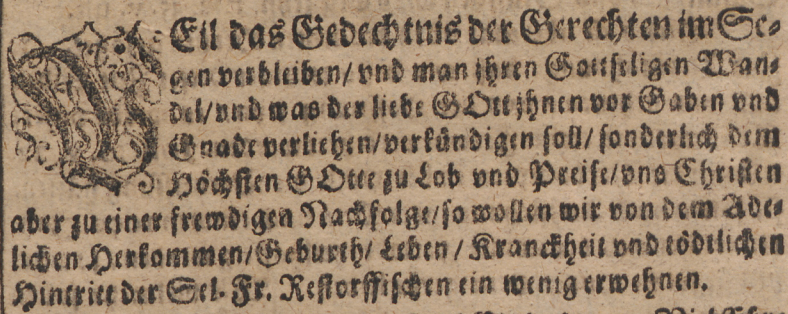 WEil das Gedechtnis der Gerechten im Se-
gen verbleiben/ vnd man jhren Gottseligen Wan-
del/ vnd was der liebe GOtt jhnen vor Gaben vnd
Gnade verliehen/ verkündigen soll/ sonderlich dem
Höchsten GOtte zu Lob vnd Preise/ vns Christen
aber zu einer frewdigen Nachfolge/ so wollen wir von dem Ade-
lichen Herkommen/ Geburth/ Leben / Kranckheit vnd tödtlichen
Hintritt der Sel. Fr. Restorffischen ein wenig erwehnen.